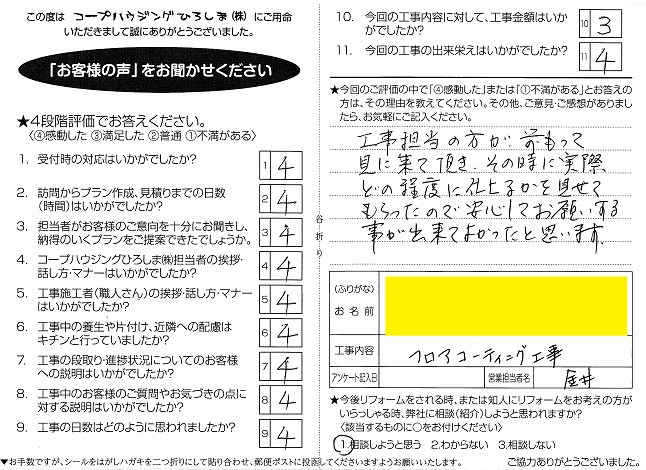 この度は コープハウジングひろしま(株) にご用命
いただきまして誠にありがとうございました。
「お客様の声」をお聞かせください
★4段階評価でお答えください。
〈④感動した ③満足した ②普通 ①不満がある〉
1. 受付時の対応はいかがでしたか?
1 4
2. 訪問からプラン作成、見積りまでの日数
(時間)はいかがでしたか?
2 4
3. 担当者がお客様のご意向を十分にお聞きし、
納得のいくプランをご提案できたでしょうか。
3 4
4. コープハウジングひろしま㈱担当者の挨拶・
話し方・マナーはいかがでしたか?
4 4
5. 工事施工者(職人さん)の挨拶・話し方・マナー
はいかがでしたか?
5 4
6. 工事中の養生や片付け、近隣への配慮は
キチンと行っていましたか?
6 4
7. 工事の段取り・進捗状況についてのお客様
への説明はいかがでしたか?
7 4
8. 工事中のお客様のご質問やお気づきの点に
対する説明はいかがでしたか?
8 4
9. 工事の日数はどのように思われましたか?
9 4
▼お手数ですが、シールをはがしハガキを二つ折りにして貼り合わせ、郵便ポストに投函してくださいますようお願いいたします。
谷折り
10. 今回の工事内容に対して、工事金額はいか
がでしたか?
10 3
11. 今回の工事の出来栄えはいかがでしたか?
11 4
★今回のご評価の中で「④感動した」または「①不満がある」とお答えの
方は、その理由を教えてください。その他、ご意見・ご感想がありました
ら、お気軽にご記入ください。
工事担当の方が前もって
見に来て頂き、その時に実際
どの程度に仕上るかを見せて
もらったので安心してお願いする
事が出来てよかったと思います。
(ふりがな)
お名前
工事内容
フロアコーティング工事
アンケート記入日
営業担当者名
金井
★今後リフォームをされる時、または知人にリフォームをお考えの方が
いらっしゃる時、弊社に相談(紹介)しようと思われますか?
〈該当するものに○をお付けください〉
1.相談しようと思う 2.わからない 3.相談しない
ご協力ありがとうございました。